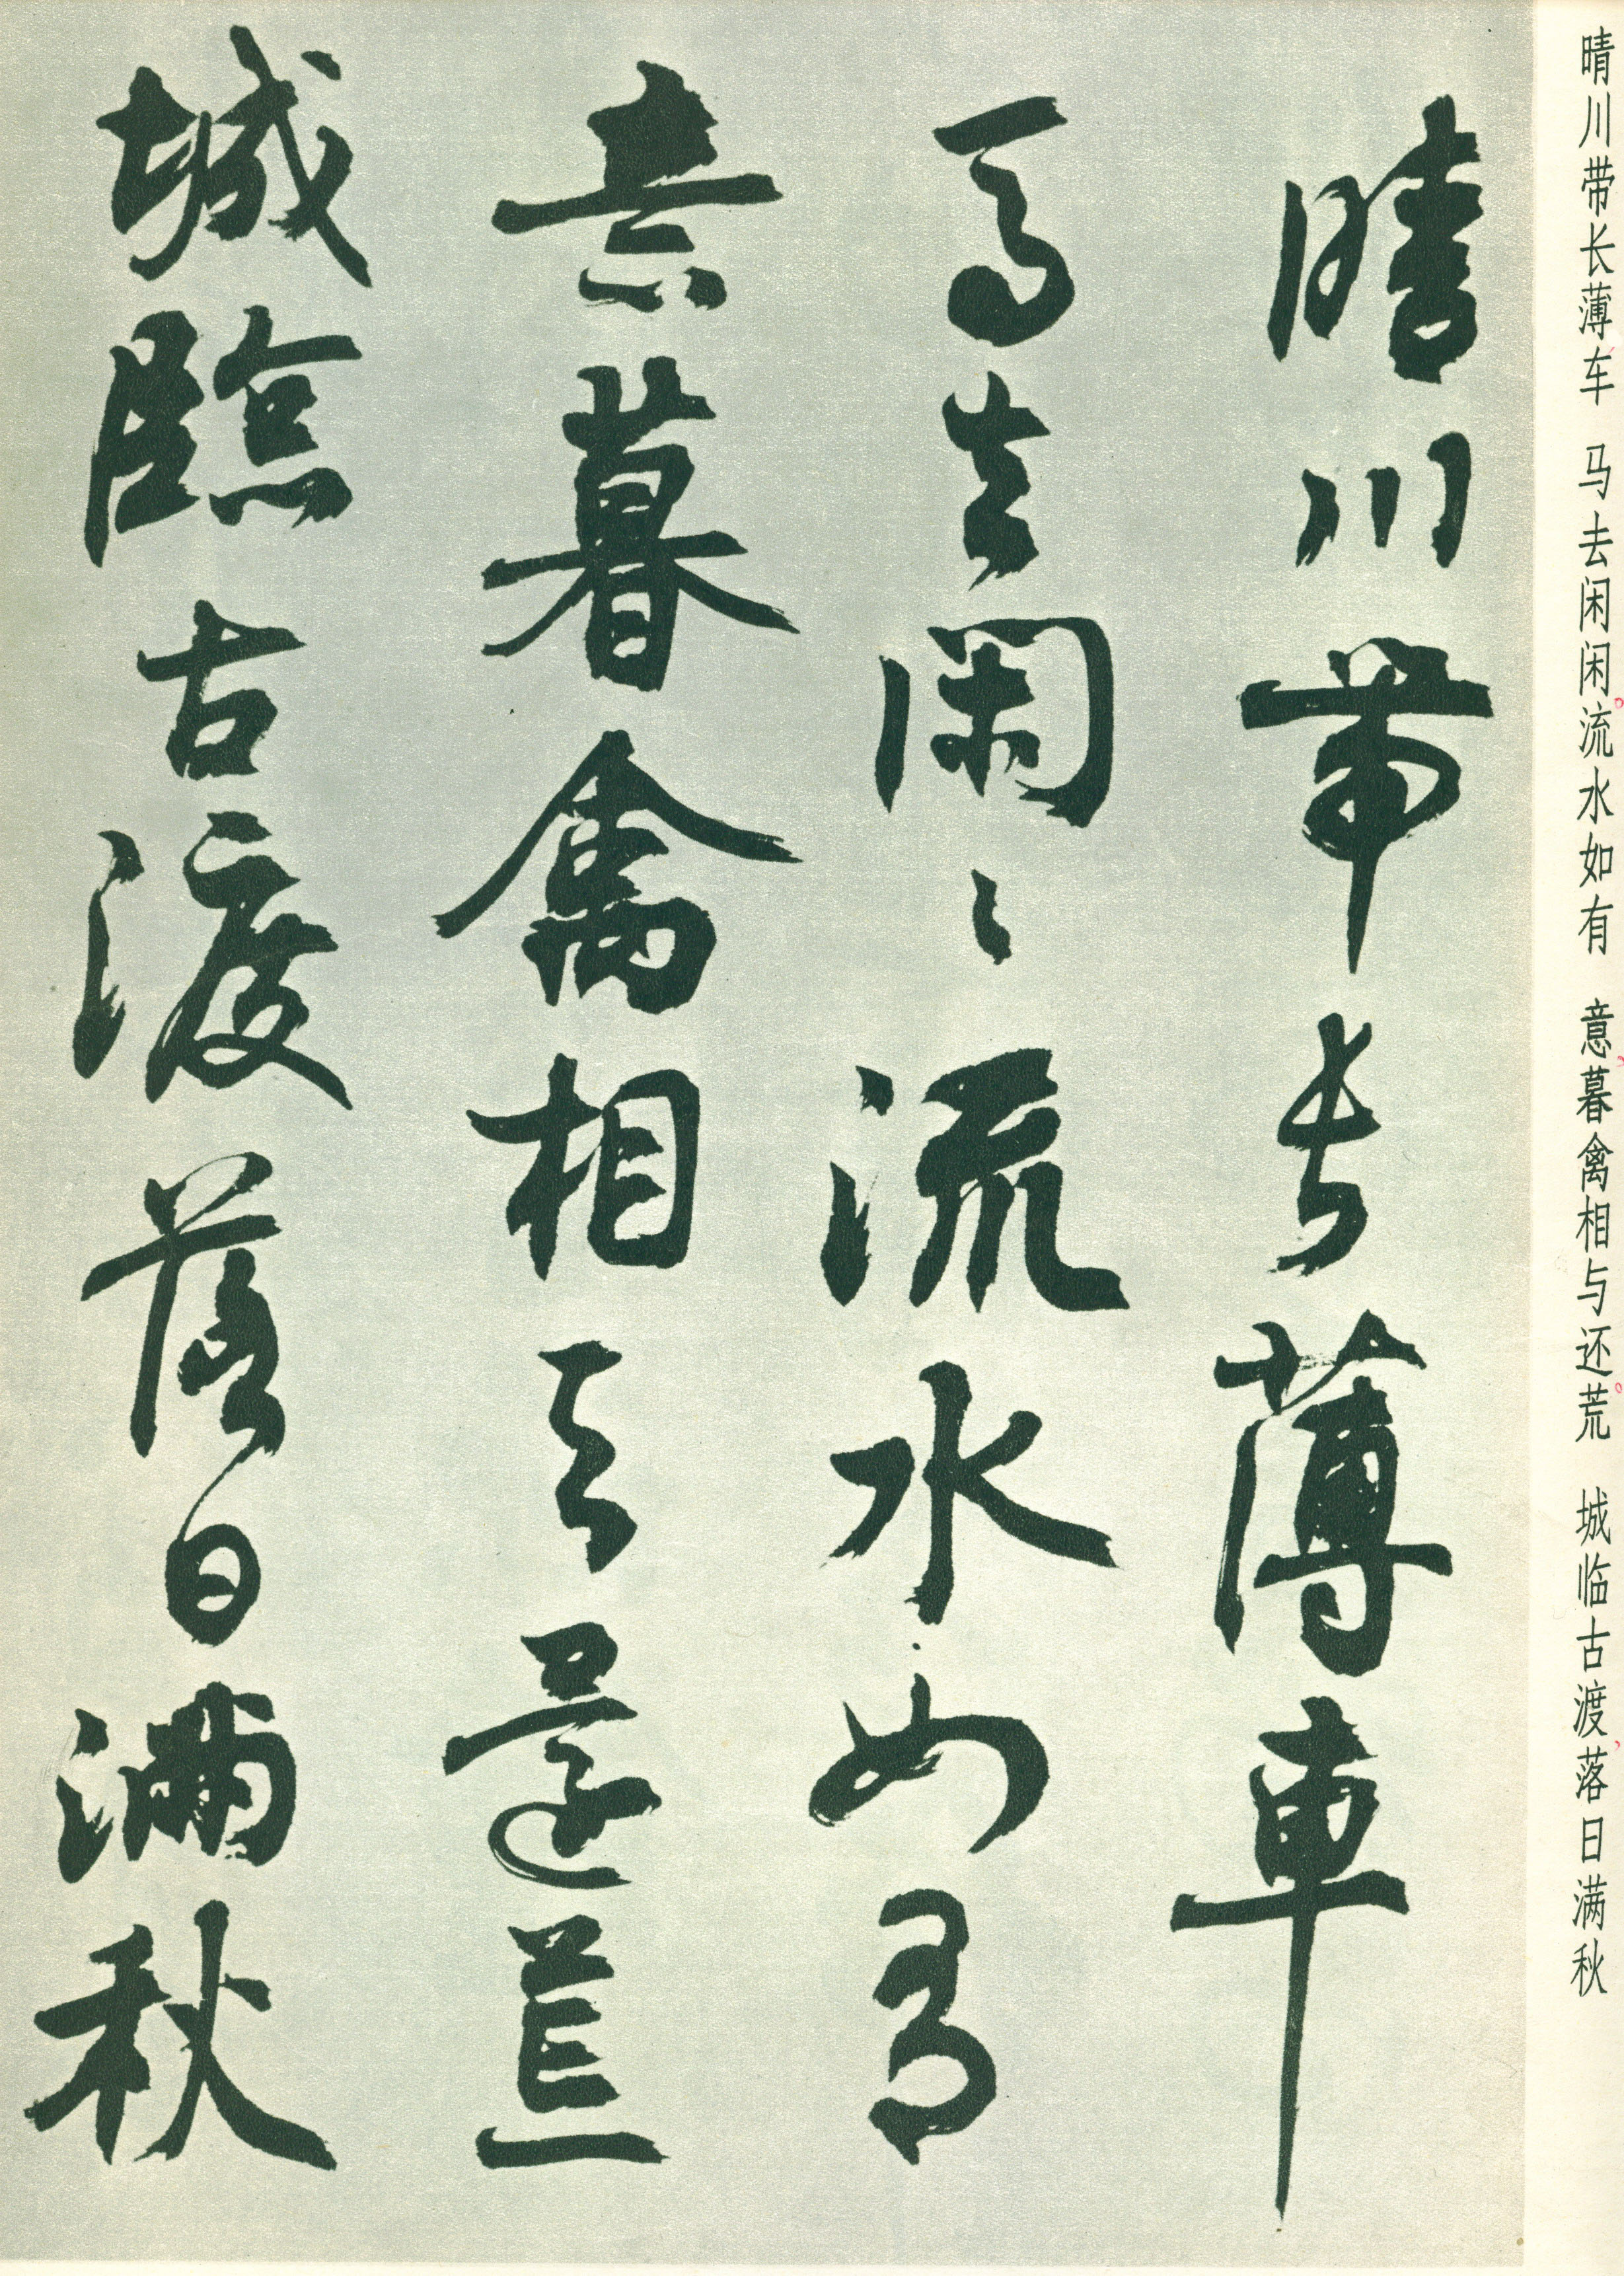 晴川带长薄车 马去闲闲流水如有 意暮禽相与还荒 城临古渡落日满秋
晴川帶長薄車
馬去閑〻流水如有
意暮禽相与還荒
城臨古渡落日滿秋